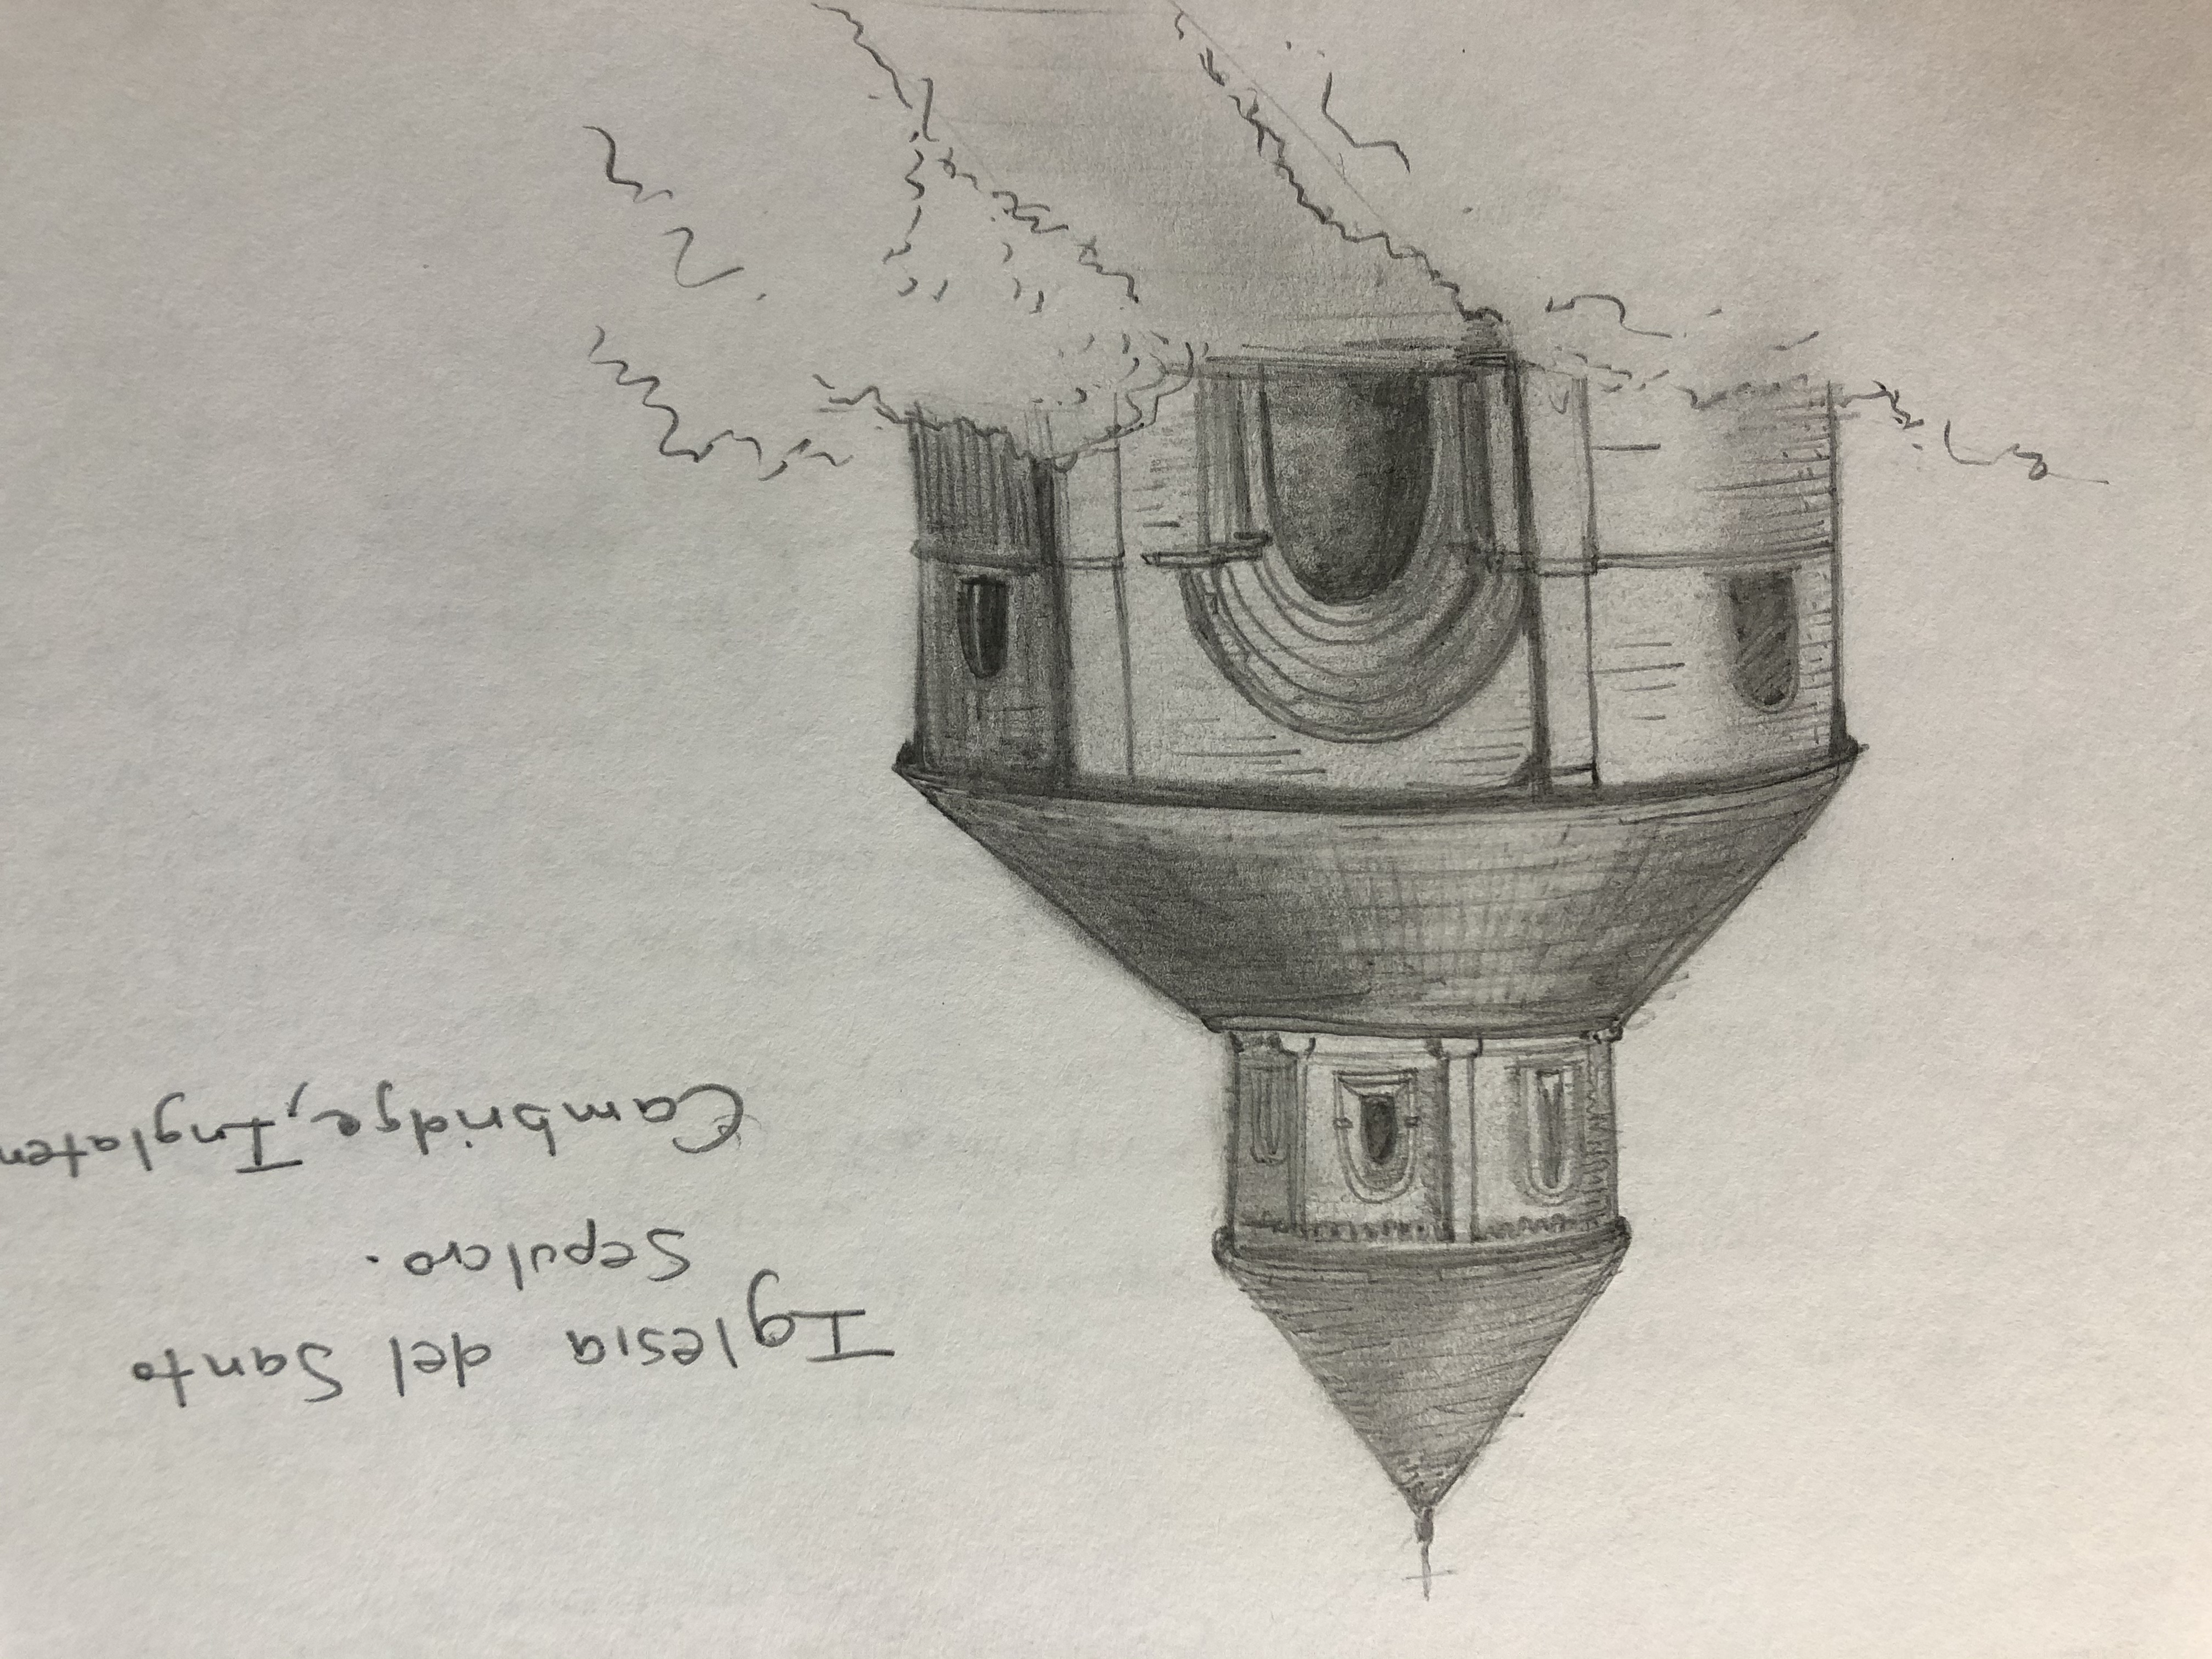 Iglesia del Santo
Sepulcro.
Cambridge, Inglater